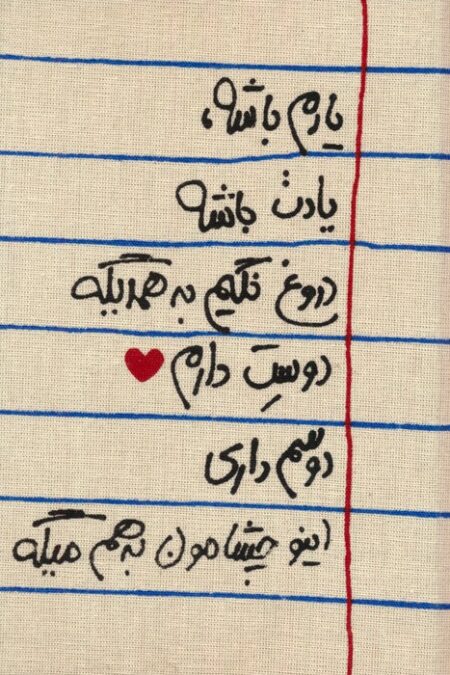 یارم باشه،
یادت باشه
دروغ نگیم به همدیگه
دوسِت دارم
دوسم داری
اینو چشامون به هم میگه